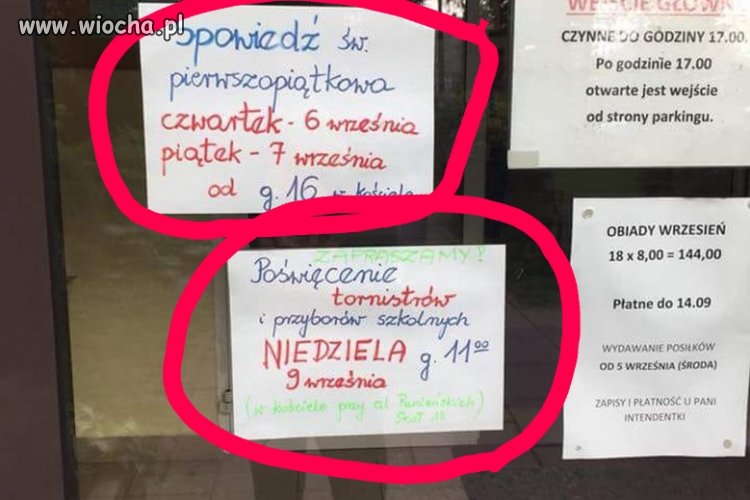 www.wiocha.pl
Spowiedź św.
pierwszopiątkowa
czwartek - 6 września
piątek - 7 września
od g. 16 w kościele
ZAPRASZAMY!
Poświęcenie
tornistrów
i przyborów szkolnych
NIEDZIELA g. 11⁰⁰
9 września
(w kościele przy ul. Panieńskich
Skał 18.)
WEJŚCIE GŁÓWNE
CZYNNE DO GODZINY 17.00.
Po godzinie 17.00
otwarte jest wejście
od strony parkingu.
OBIADY WRZESIEŃ
18 x 8,00 = 144,00
Płatne do 14.09
WYDAWANIE POSIŁKÓW
OD 5 WRZEŚNIA (ŚRODA)
ZAPISY I PŁATNOŚĆ U PANI
INTENDENTKI